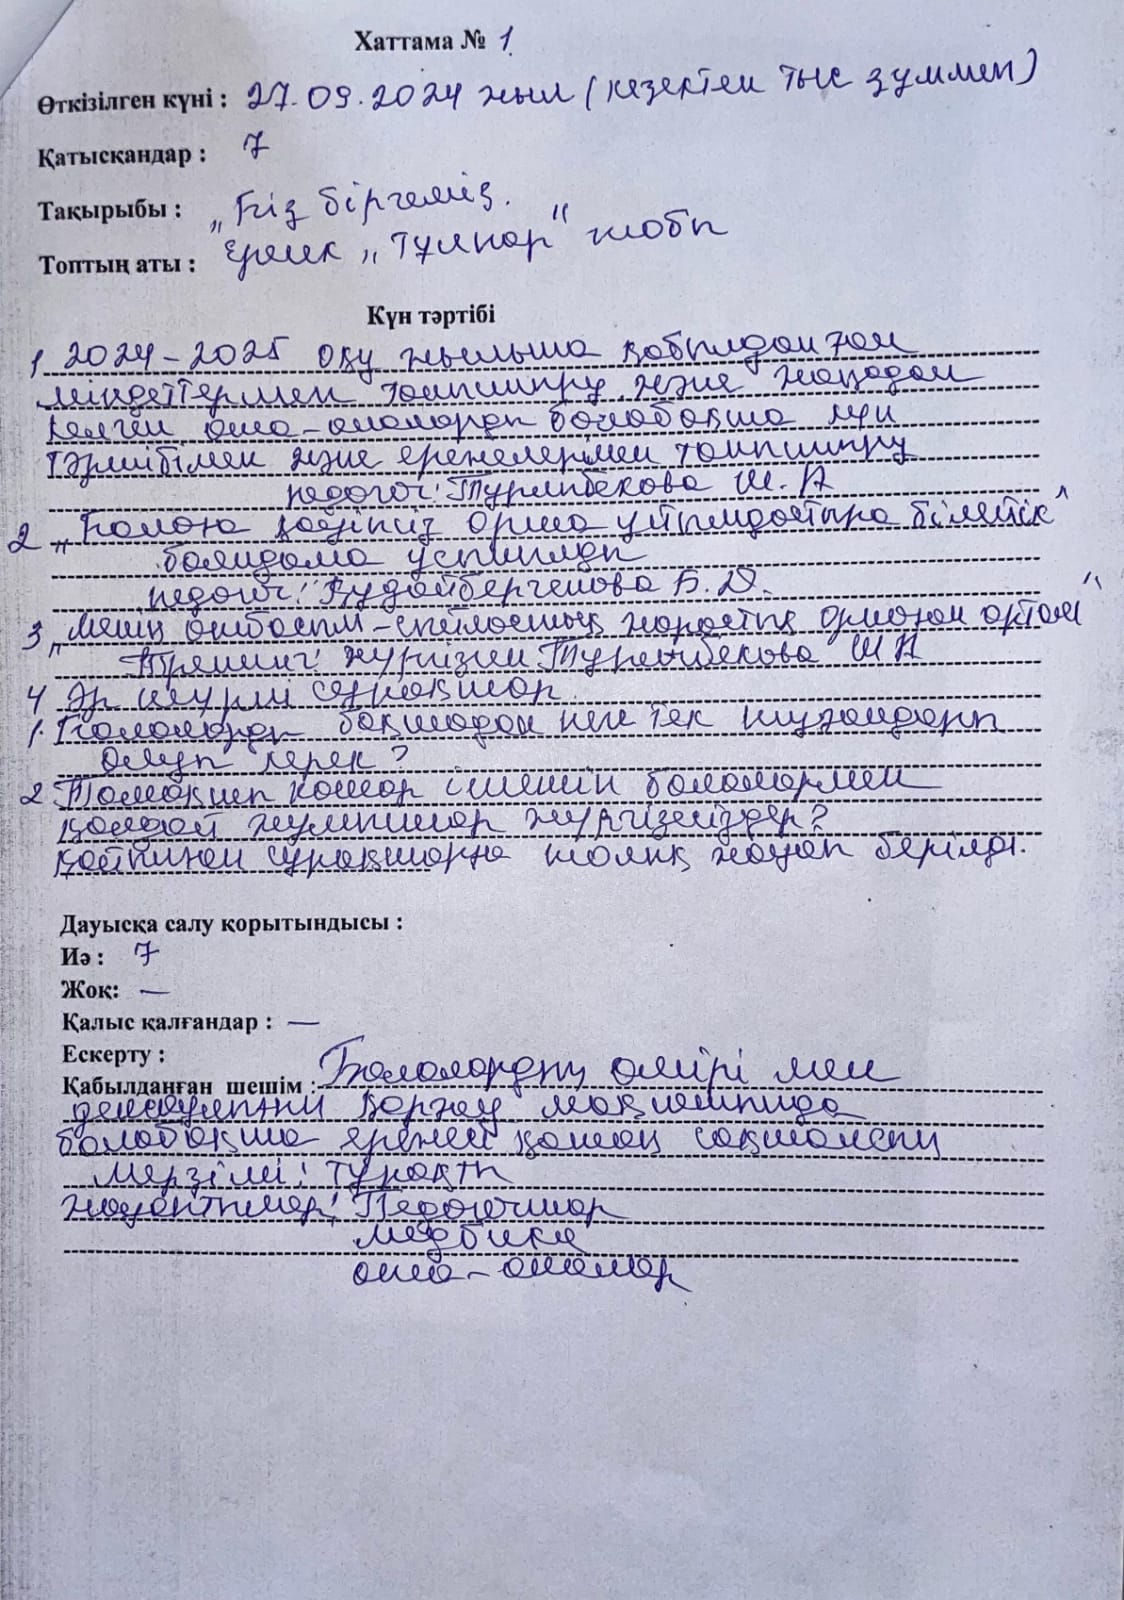 Хаттама № 1
Өткізілген күні : 27.09.2024 жыл (кезектен тыс зуммен)
Қатысқандар : 7
Тақырыбы : „Біз біргеміз.
Топтың аты : Ересек „Тұлпар" тобы
Күн тәртібі
1 2024-2025 оқу жылына қабылданған
міндеттермен таныстыру және жаңадан
келген ата-аналарды балабақша күн
тәртібімен және ережелермен таныстыру
педагог: Турлыбекова Ш. А
2 „Балаға қауіпсіз орта ұйымдастыра білейік"
баяндама ұсынылды
педагог: Құдайбергенова Б. Д.
3 „Менің отбасым-сыйластық жарастық орнаған ортам"
Тренинг: жүргізген Турлыбекова Ш А
4 Әр түрлі сұрақтар
1. Балаларды бақшадан неге тек туғандары
алуы керек?
2 Тамақты кояр балалармен
қандай жұмыстар жүргізесіздер?
Қойылған сұрақтарға толық жауап берілді.
Дауысқа салу қорытындысы :
Иә : 7
Жоқ: —
Қалыс қалғандар : —
Ескерту :
Қабылданған шешім : Балалардың өмірі мен
денсаулығын қорғау мақсатында
балабақша ережесі қатаң сақталсын
мерзімі: тұрақты
жауаптылар: Педагогтар
медбике
ата-аналар